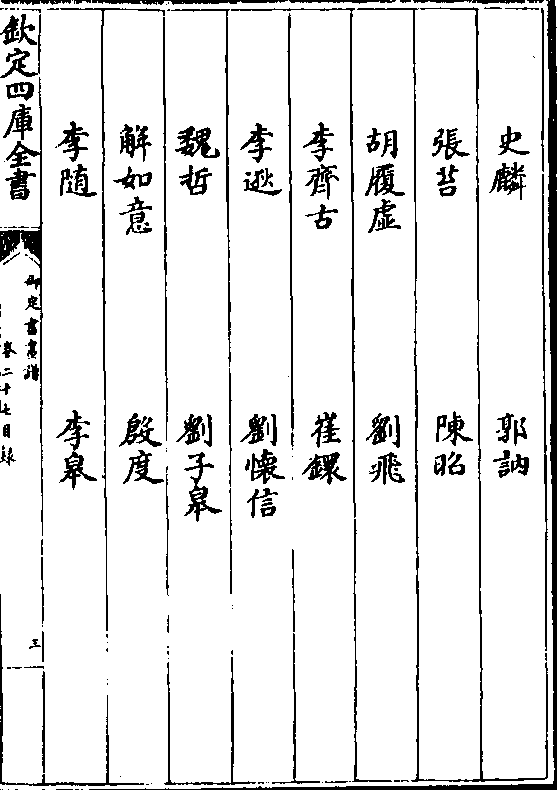 史麟 郭訥
張萔 陳昭
胡履虛 劉飛
李齊古 崔鐶
李逖 劉懷信
魏哲 劉子皋
解如意 殷度
李随 李皋
欽定四庫全書
御定書畫譜
卷二十七目録
三